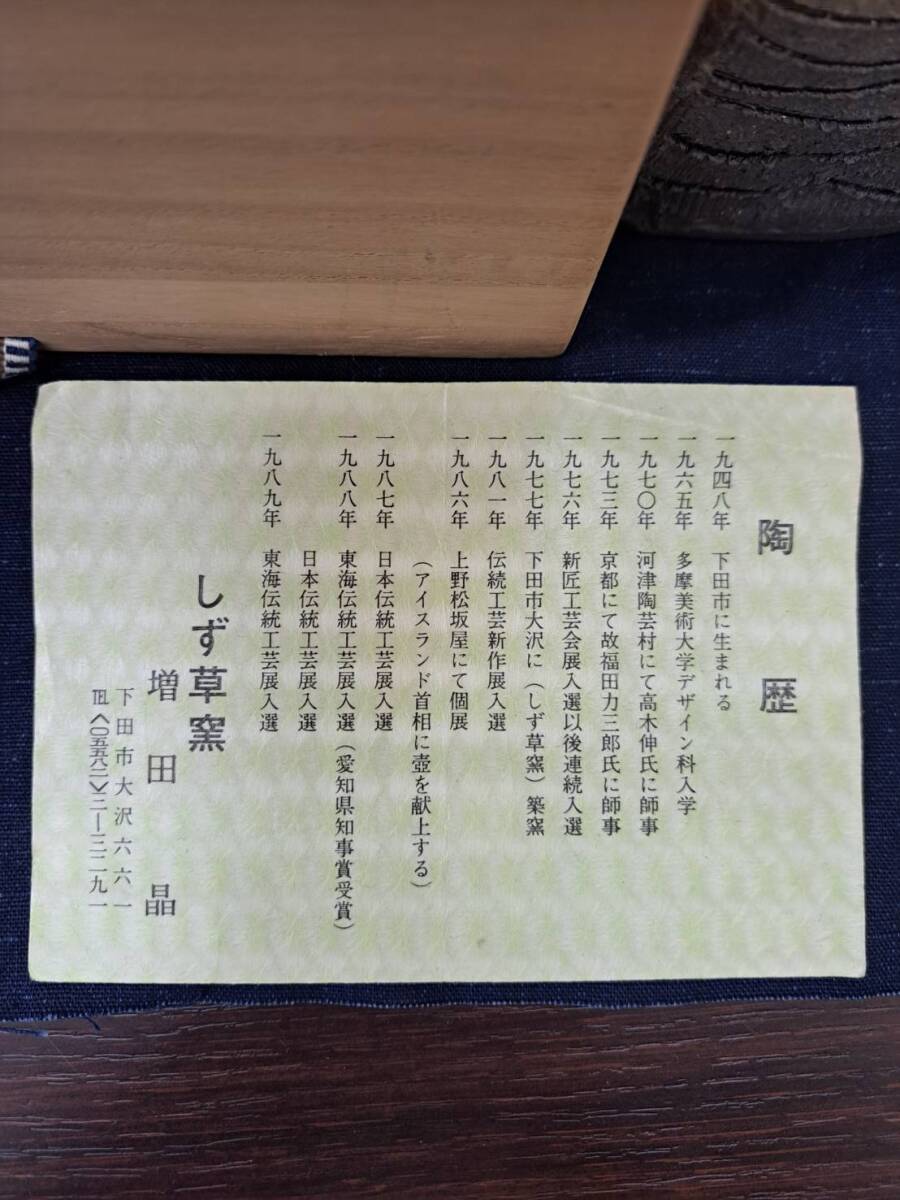 陶歴
一九四八年 下田市に生まれる
一九六五年 多摩美術大学デザイン科入学
一九七〇年 河津陶芸村にて高木伸氏に師事
一九七三年 京都にて故福田力三郎氏に師事
一九七六年 新匠工芸会展入選以後連続入選
一九七七年 下田市大沢に（しず草窯）築窯
一九八一年 伝統工芸新作展入選
一九八六年 上野松坂屋にて個展
（アイスランド首相に壺を献上する）
一九八七年 日本伝統工芸展入選
一九八八年 東海伝統工芸展入選（愛知県知事賞受賞）
日本伝統工芸展入選
一九八九年 東海伝統工芸展入選
しず草窯
増田晶
下田市大沢六六一
℡〈〇五五八二〉二―三二九一